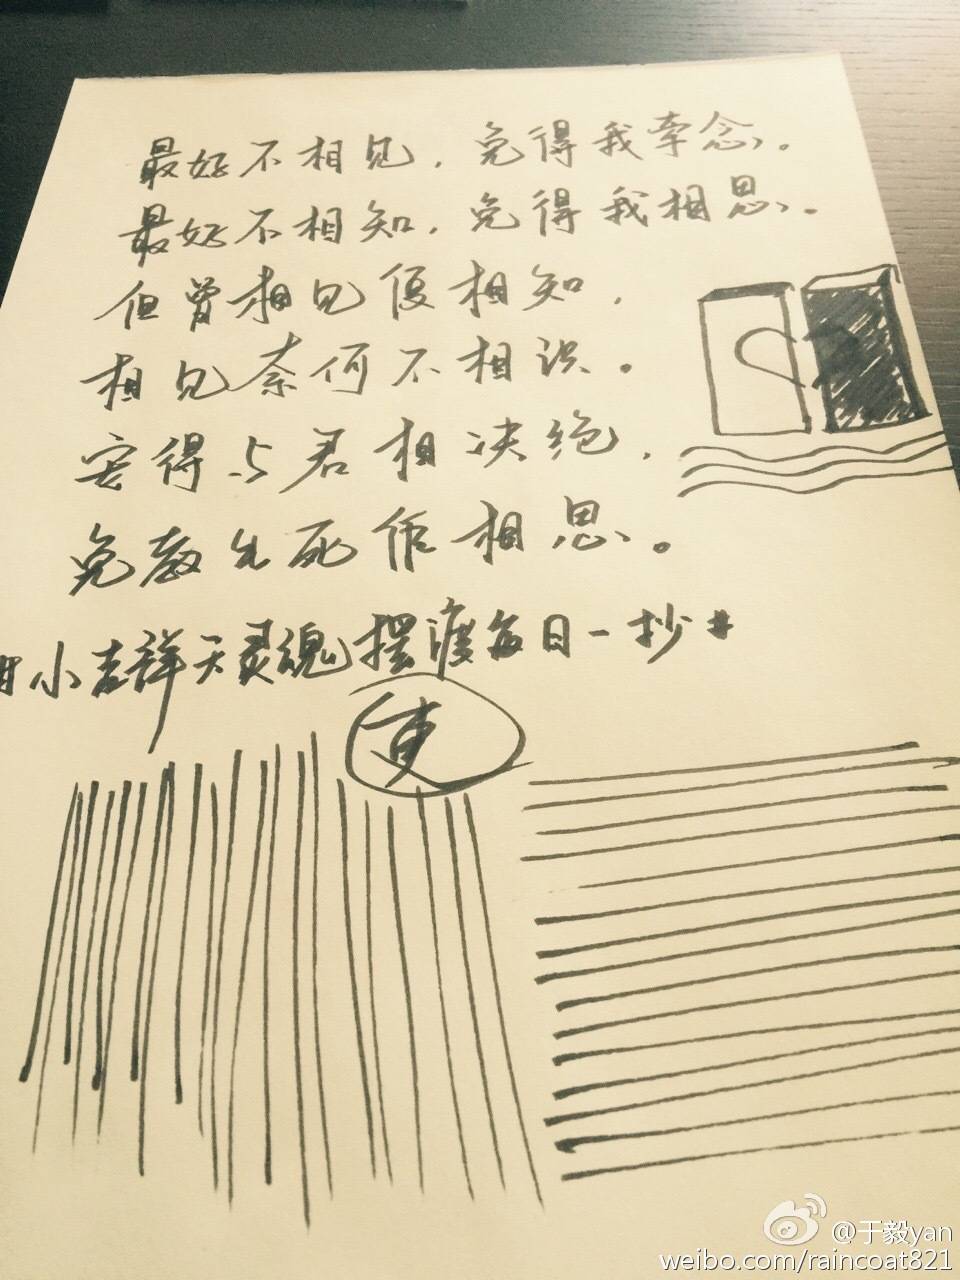 最好不相见，免得我牵念。
最好不相知，免得我相思。
但曾相见便相知，
相见奈何不相识。
安得与君相决绝，
免教生死作相思。
#小吉祥天灵魂摆渡每日一抄#
@于毅yan
weibo.com/raincoat821